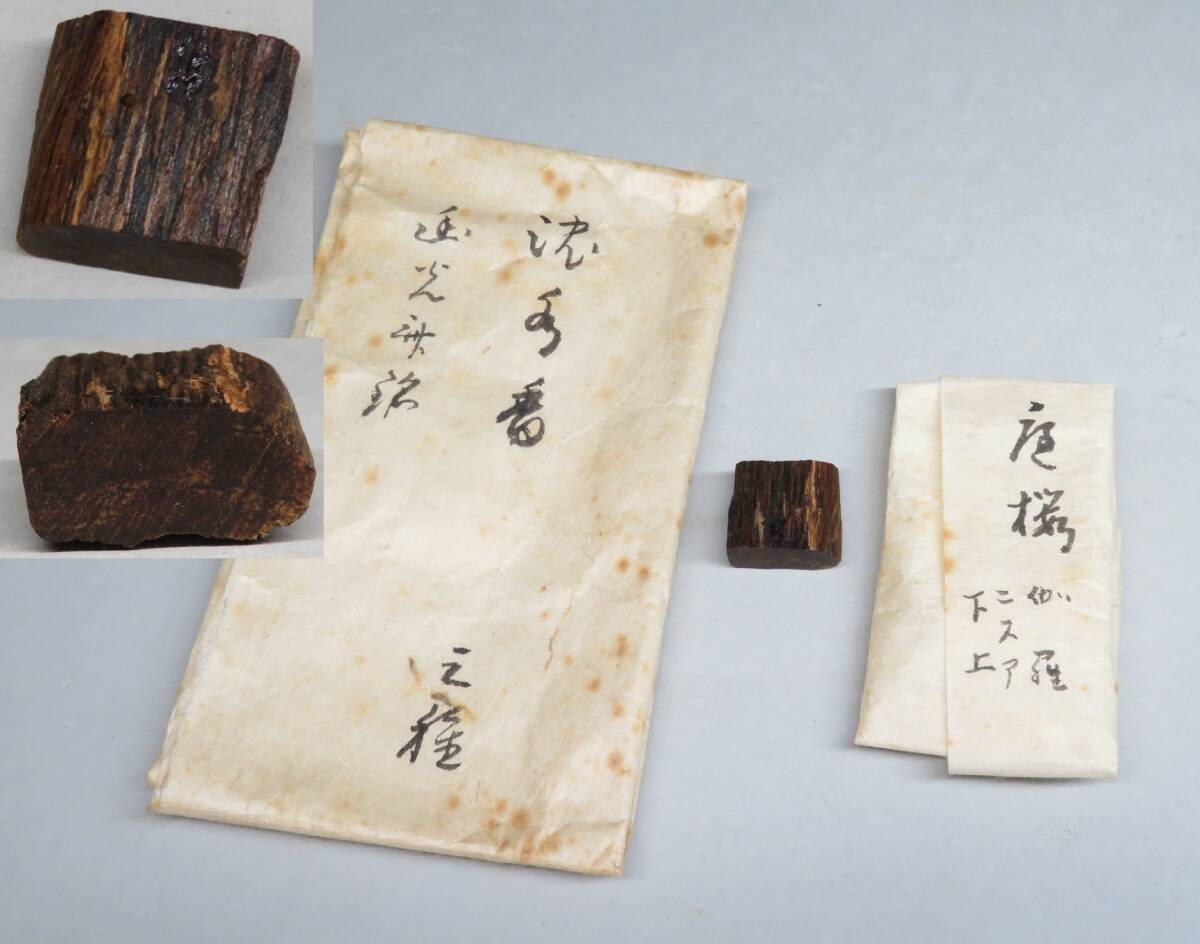 沈水香
幽光斎銘
三種
庭桜
伽羅
ニスア
下上